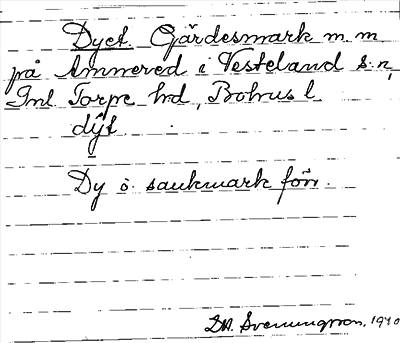 Dyet. Gärdesmark m.m
på Ammered i Vesteland s:n,
Inl. Torpe hd, Bohus l.
dy̅t
Dy o. sankmark förr.
D.A. Svenungsson, 1940